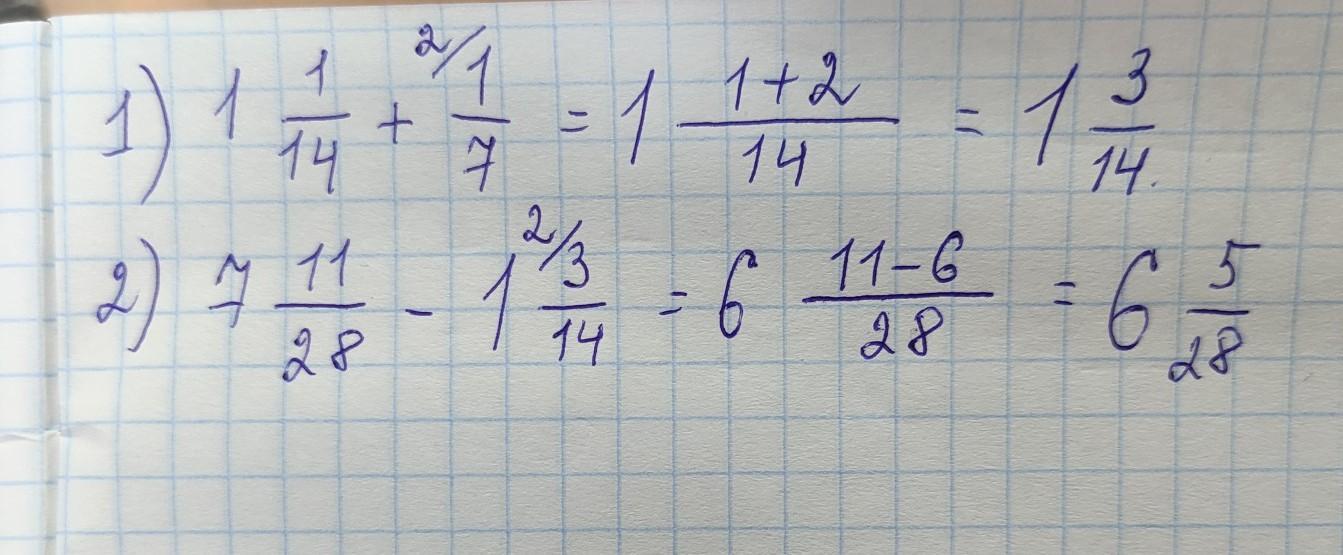 1) 1 1/14 + ²⁄1/7 = 1 (1+2)/14 = 1 3/14.
2) 7 11/28 - 1 ²⁄3/14 = 6 (11-6)/28 = 6 5/28